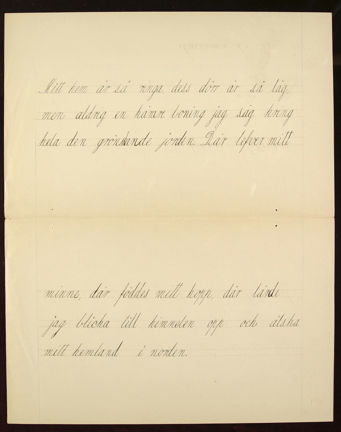 Mitt hem är så ringa dess dörr är så låg,
men aldrig en kärare boning jag såg kring
hela den grönskande jorden. Där lefver mitt
minne, där föddes mitt hopp, där lärde
jag blicka till himmelen opp och älska
mitt hemland i norden.